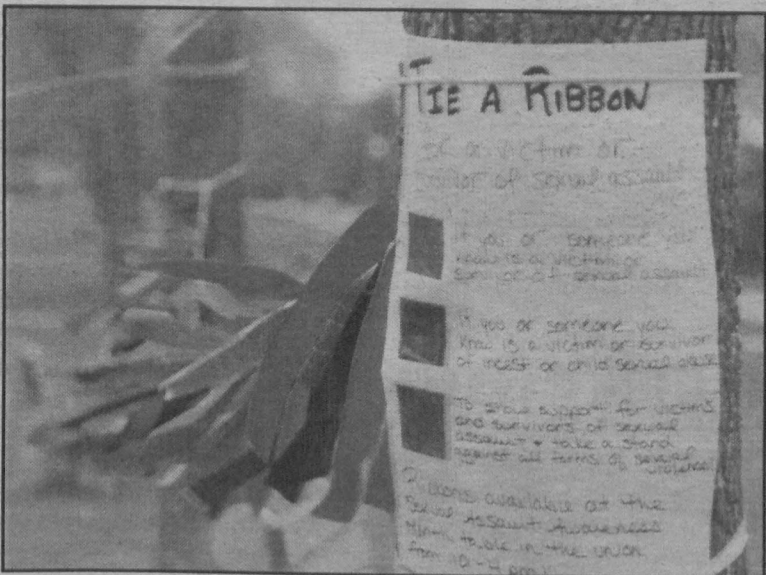 TIE A RIBBON
a victim or
of sexual assault
If you or someone you
know is a victim or
survivor of sexual assault
If you or someone you
know is a victim or survivor
of incest or child sexual abuse
To show support for victims
and survivors of sexual
assault + take a stand
against all forms of sexual
violence
Ribbons available at the
Sexual Assault Awareness
Month table in the union
from 10-4 pm!